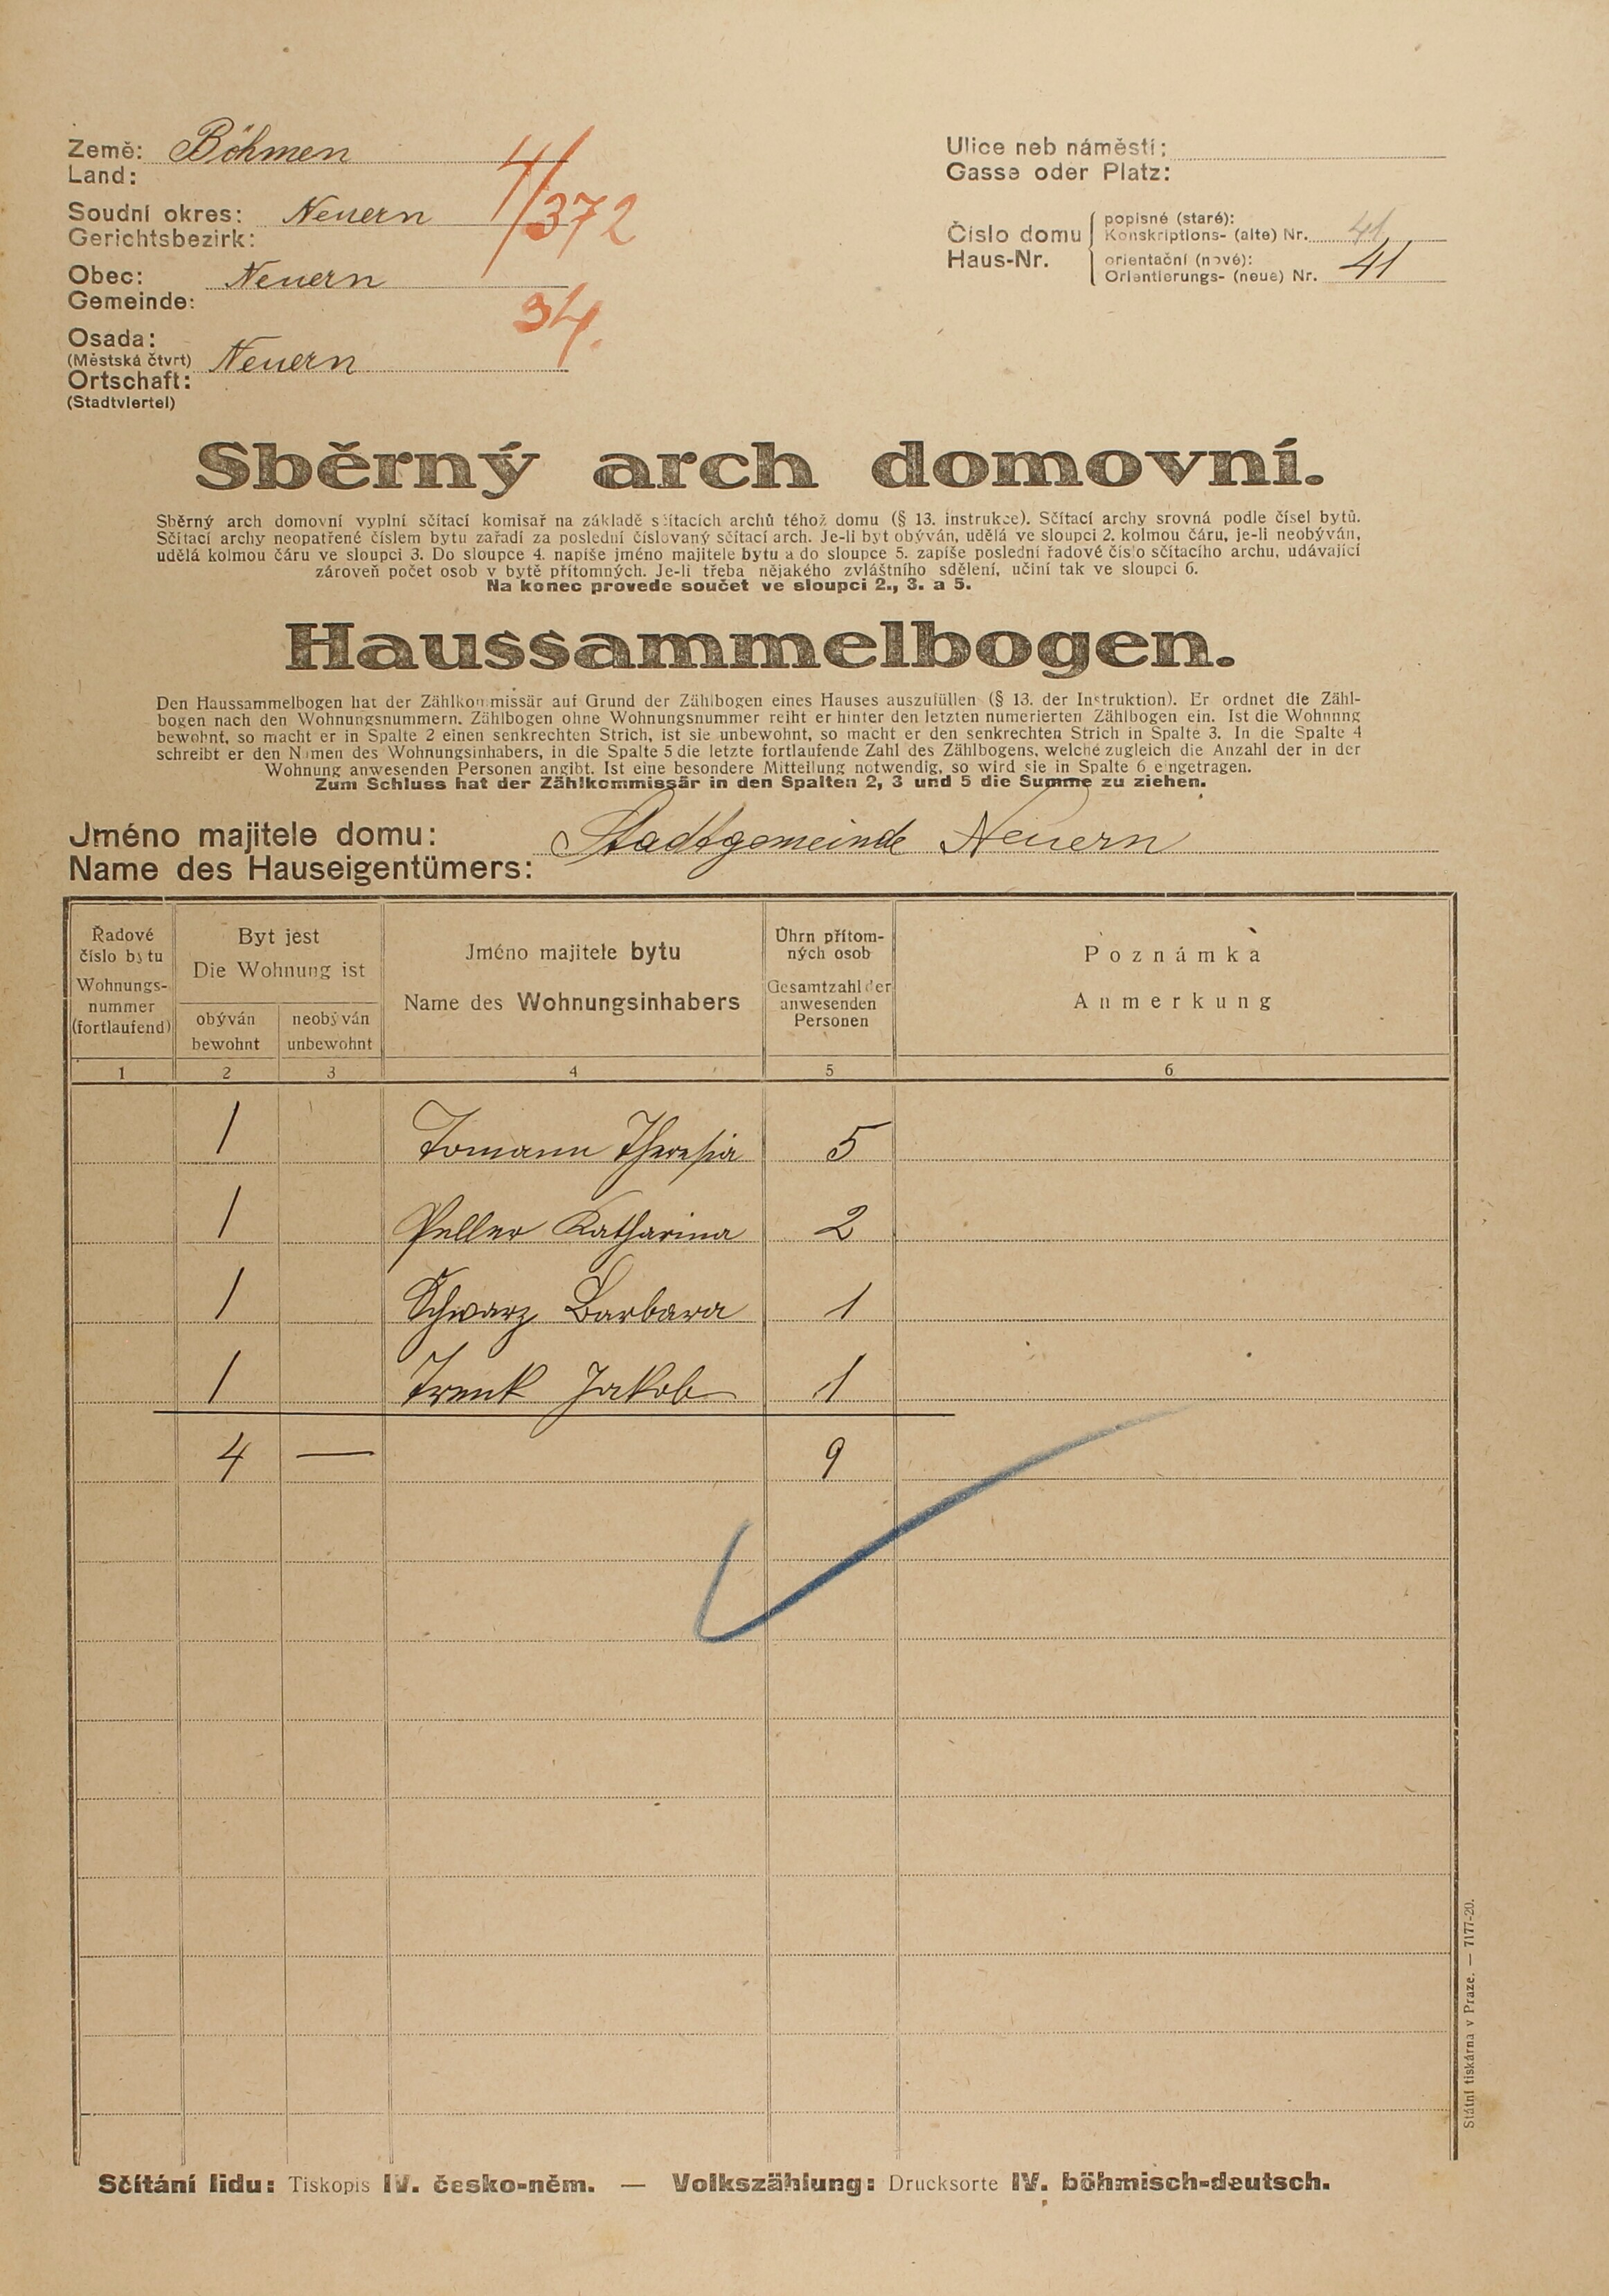 Země: Böhmen
Land:
Soudní okres: Neuern
Gerichtsbezirk:
Obec: Neuern
Gemeinde:
Osada:
(Městská čtvrt) Neuern
Ortschaft:
(Stadtviertel)
4/372
34.
Ulice neb náměstí:
Gasse oder Platz:
Číslo domu
Haus-Nr.
popisné (staré):
Konskriptions- (alte) Nr. 41
orientační (nové):
Orientierungs- (neue) Nr. 41
Sběrný arch domovní.
Sběrný arch domovní vyplní sčítací komisař na základě sčítacích archů téhož domu (§ 13. instrukce). Sčítací archy srovná podle čísel bytů.
Sčítací archy neopatřené číslem bytu zařadí za poslední číslovaný sčítací arch. Je-li byt obýván, udělá ve sloupci 2. kolmou čáru, je-li neobýván,
udělá kolmou čáru ve sloupci 3. Do sloupce 4. napíše jméno majitele bytu a do sloupce 5. zapíše poslední řadové číslo sčítacího archu, udávající
zároveň počet osob v bytě přítomných. Je-li třeba nějakého zvláštního sdělení, učiní tak ve sloupci 6.
Na konec provede součet ve sloupci 2., 3. a 5.
Haussammelbogen.
Den Haussammelbogen hat der Zählkommissär auf Grund der Zählbogen eines Hauses auszufüllen (§ 13. der Instruktion). Er ordnet die Zähl-
bogen nach den Wohnungsnummern. Zählbogen ohne Wohnungsnummer reiht er hinter den letzten numerierten Zählbogen ein. Ist die Wohnung
bewohnt, so macht er in Spalte 2 einen senkrechten Strich, ist sie unbewohnt, so macht er den senkrechten Strich in Spalte 3. In die Spalte 4
schreibt er den Namen des Wohnungsinhabers, in die Spalte 5 die letzte fortlaufende Zahl des Zählbogens, welche zugleich die Anzahl der in der
Wohnung anwesenden Personen angibt. Ist eine besondere Mitteilung notwendig, so wird sie in Spalte 6 eingetragen.
Zum Schluss hat der Zählkommissär in den Spalten 2, 3 und 5 die Summe zu ziehen.
Jméno majitele domu: Stadtgemeinde Neuern
Name des Hauseigentümers:
Řadové číslo bytu
Wohnungs-nummer (fortlaufend)
Byt jest
Die Wohnung ist
obýván
bewohnt
neobýván
unbewohnt
Jméno majitele bytu
Name des Wohnungsinhabers
Úhrn přítom-ných osob
Gesamtzahl der anwesenden Personen
Poznámka
Anmerkung
1 2 3 4 5 6
/ Tomann Theresia 5
/ Peller Katharina 2
/ Schwarz Barbara 1
/ Trenk Jakob 1
4 — 9
Státní tiskárna v Praze. — 7177-20.
Sčítání lidu: Tiskopis IV. česko-něm. — Volkszählung: Drucksorte IV. böhmisch-deutsch.